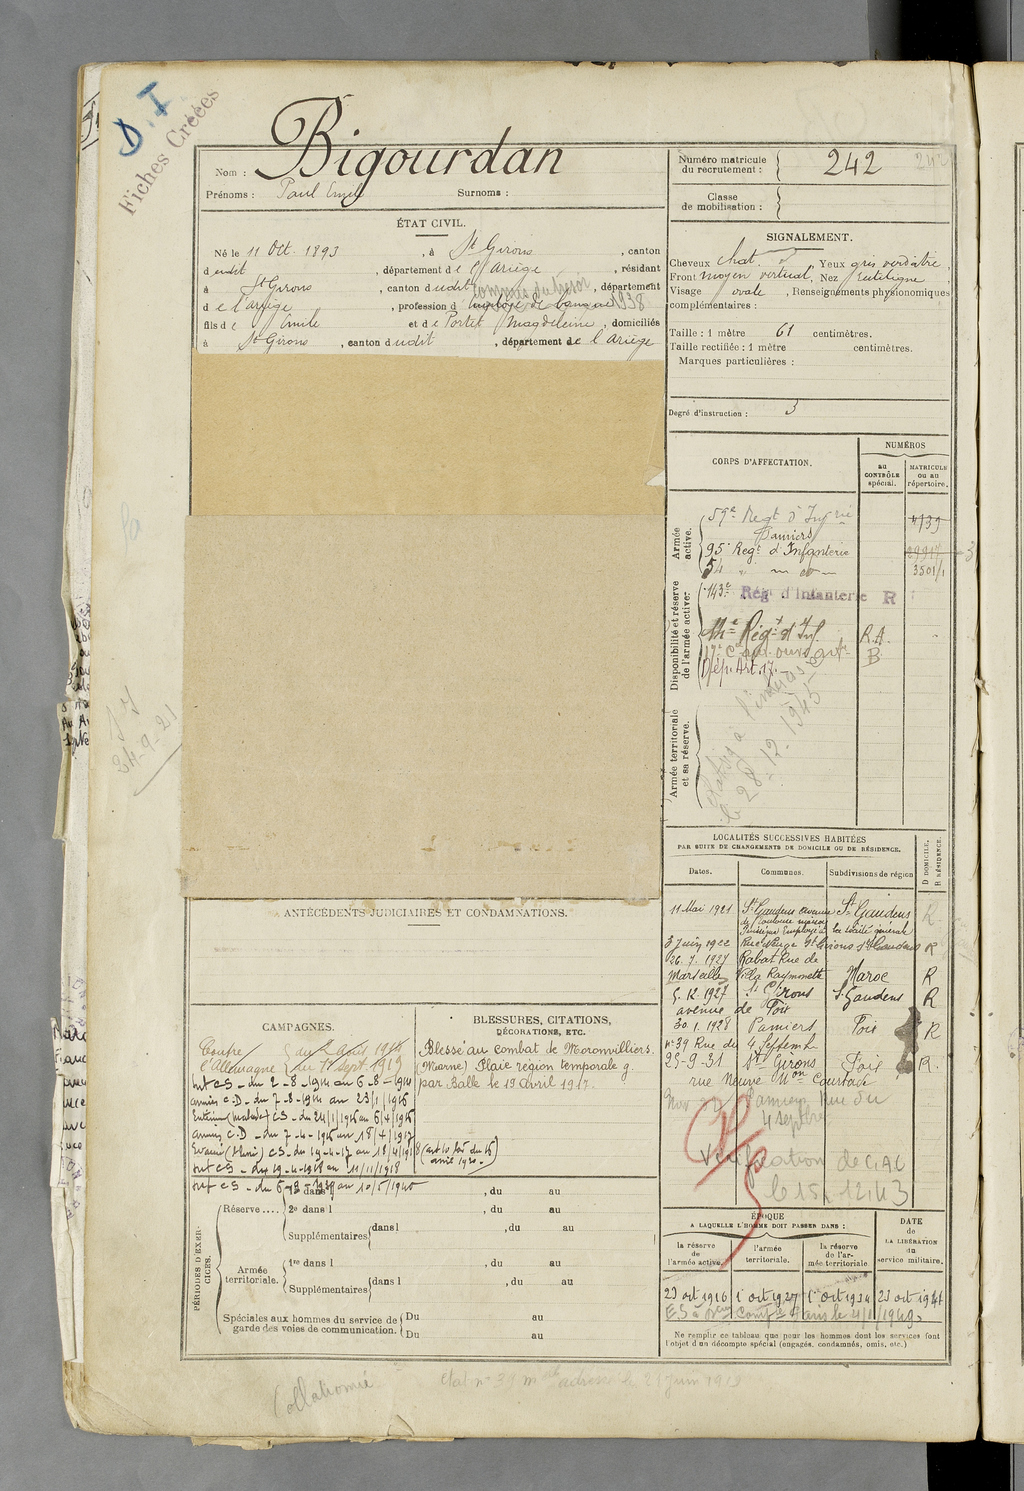 D.I
Fiches Créées
Nom : Bigourdan
Prénoms : Paul Emile Surnoms :
ÉTAT CIVIL.
Né le 11 Oct. 1893, à St Girons, canton
dudit, département de l'Ariège, résidant
à St Girons, canton dudit, département
de l'ariège, profession d'employé de banque 1938
fils de Emile et de Portet Magdeleine, domiciliés
à St Girons, canton dudit, département de l'Ariège
Numéro matricule du recrutement : 242 242
Classe de mobilisation :
SIGNALEMENT.
Cheveux chat. Yeux gris verdâtre,
Front moyen vertical, Nez rectiligne,
Visage ovale, Renseignements physionomiques
complémentaires :
Taille : 1 mètre 61 centimètres.
Taille rectifiée : 1 mètre centimètres.
Marques particulières :
Degré d'instruction : 3
CORPS D'AFFECTATION.
NUMÉROS
au CONTRÔLE spécial.
MATRICULE ou au répertoire.
Armée active.
59e Regt d'Infrie 4139
Pamiers
95e Regt d'Infanterie
54 — do — 3501/1
Disponibilité et réserve de l'armée active.
143e Rég. d'Infanterie R
Régt d'Inf. R.A.
B
Dép. Art. 17.
Armée territoriale et sa réserve.
le 28-12-1945
24-9-21
LOCALITÉS SUCCESSIVES HABITÉES
PAR SUITE DE CHANGEMENTS DE DOMICILE OU DE RÉSIDENCE.
Dates. Communes. Subdivisions de région
D DOMICILE. R RÉSIDENCE.
11 Mai 1921 St Gaudens avenue St Gaudens R
de Toulouse maison
Employé à la société générale
3 Juin 1922 St Girons St Gaudens R
26.7.1927 Rabat Rue de
Marseille Villa Raymonette Maroc R
5.12.1927 St Girons St Gaudens R
avenue de Foix
30.1.1928 Pamiers Foix R
n° 39 Rue du 4 Septemb
25-9-31 St Girons Foix R.
rue Neuve Mon Courtade
Nov Pamiers Rue du
4 septbre
Vérification de C.A.C
le 15.12.43
ANTÉCÉDENTS JUDICIAIRES ET CONDAMNATIONS.
CAMPAGNES.
Contre l'Allemagne
du 2 Août 1914
au 17 sept. 1919
int CS - du 2-8-1914 au 6-8-1914
armées C.D - du 7-8-1914 au 23/1/1916
Intérieur (malade) CS - du 24/1/1916 au 6/4/1916
armées C.D - du 7-4-1916 au 18/4/1917
Evacué (blessé) CS - du 19-4-17 au 18/4/1918 (art 10 loi du 15 avril 1920.)
int CS - du 19-4-1918 au 11/11/1918
int CS - du au 10/5/1940
BLESSURES, CITATIONS,
DÉCORATIONS, ETC.
Blessé au combat de Moronvilliers.
(Marne) Plaie région temporale g.
par Balle le 19 avril 1917.
PÉRIODES D'EXERCICES.
Réserve ....
1re dans l , du au
2e dans l , du au
Supplémentaires dans l , du au
Armée territoriale.
1re dans l , du au
Supplémentaires dans l , du au
Spéciales aux hommes du service de garde des voies de communication.
Du au
Du au
ÉPOQUE
A LAQUELLE L'HOMME DOIT PASSER DANS :
la réserve de l'armée active.
l'armée territoriale.
la réserve de l'armée territoriale
DATE DE LA LIBÉRATION du service militaire.
23 oct 1916 1 oct 1927 1 oct 1934 23 oct 1941
Ne remplir ce tableau que pour les hommes dont les services font
l'objet d'un décompte spécial (engagés, condamnés, omis, etc.)
Collationné